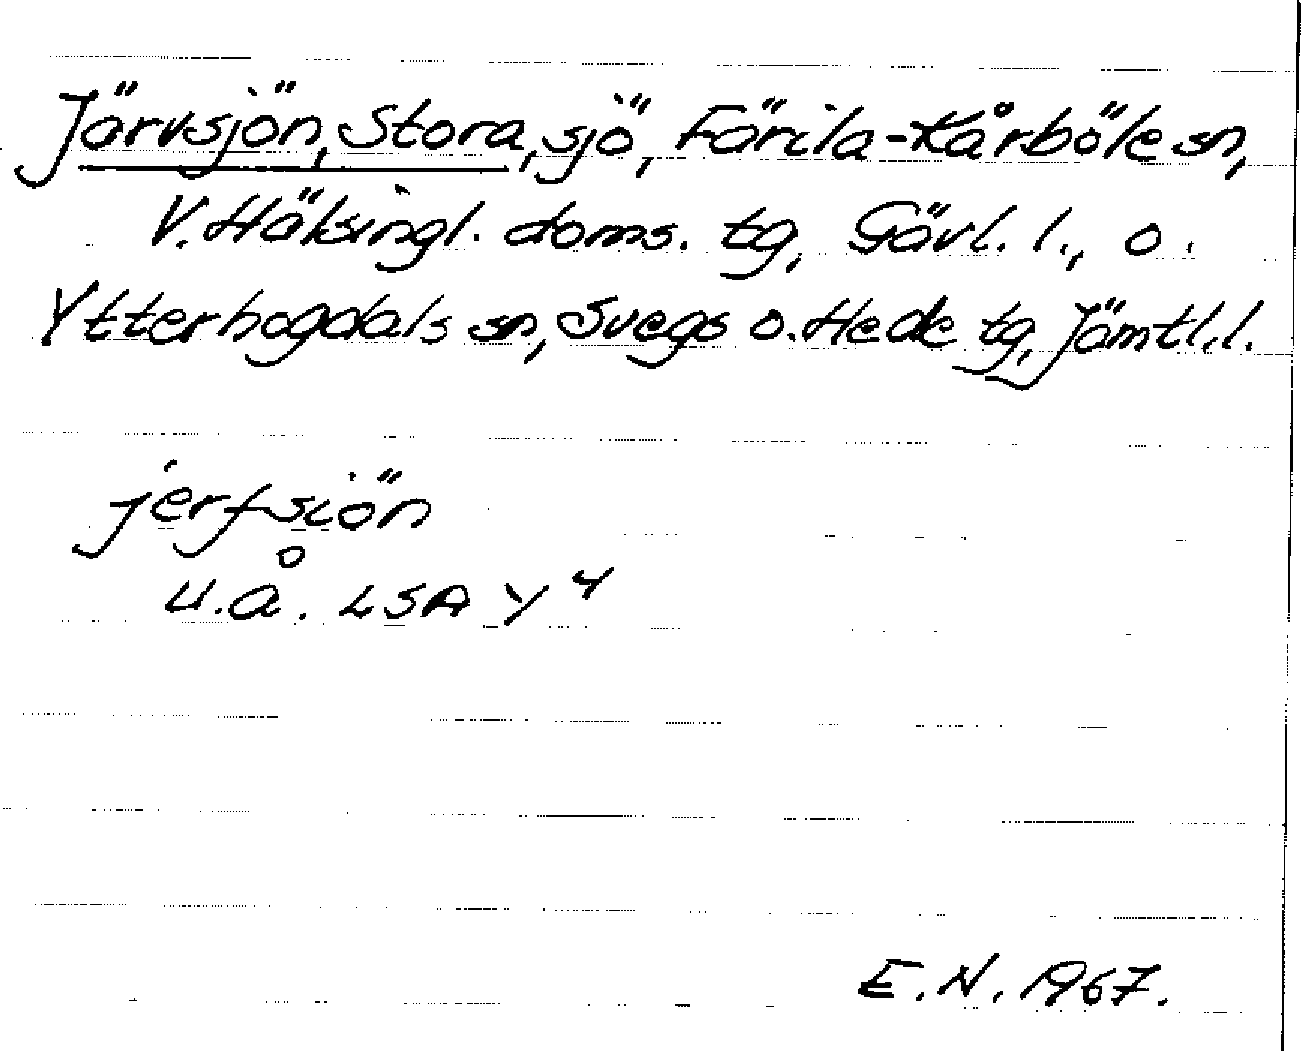 Järvsjön, Stora, sjö, Färila-Kårböle sn,
V. Hälsingl. doms. tg, Gävl. l., o.
Ytterhogdals sn, Svegs o. Hede tg, Jämtl. l.
jerfsiön
u.å. LSA Y 4
E.N. 1967.